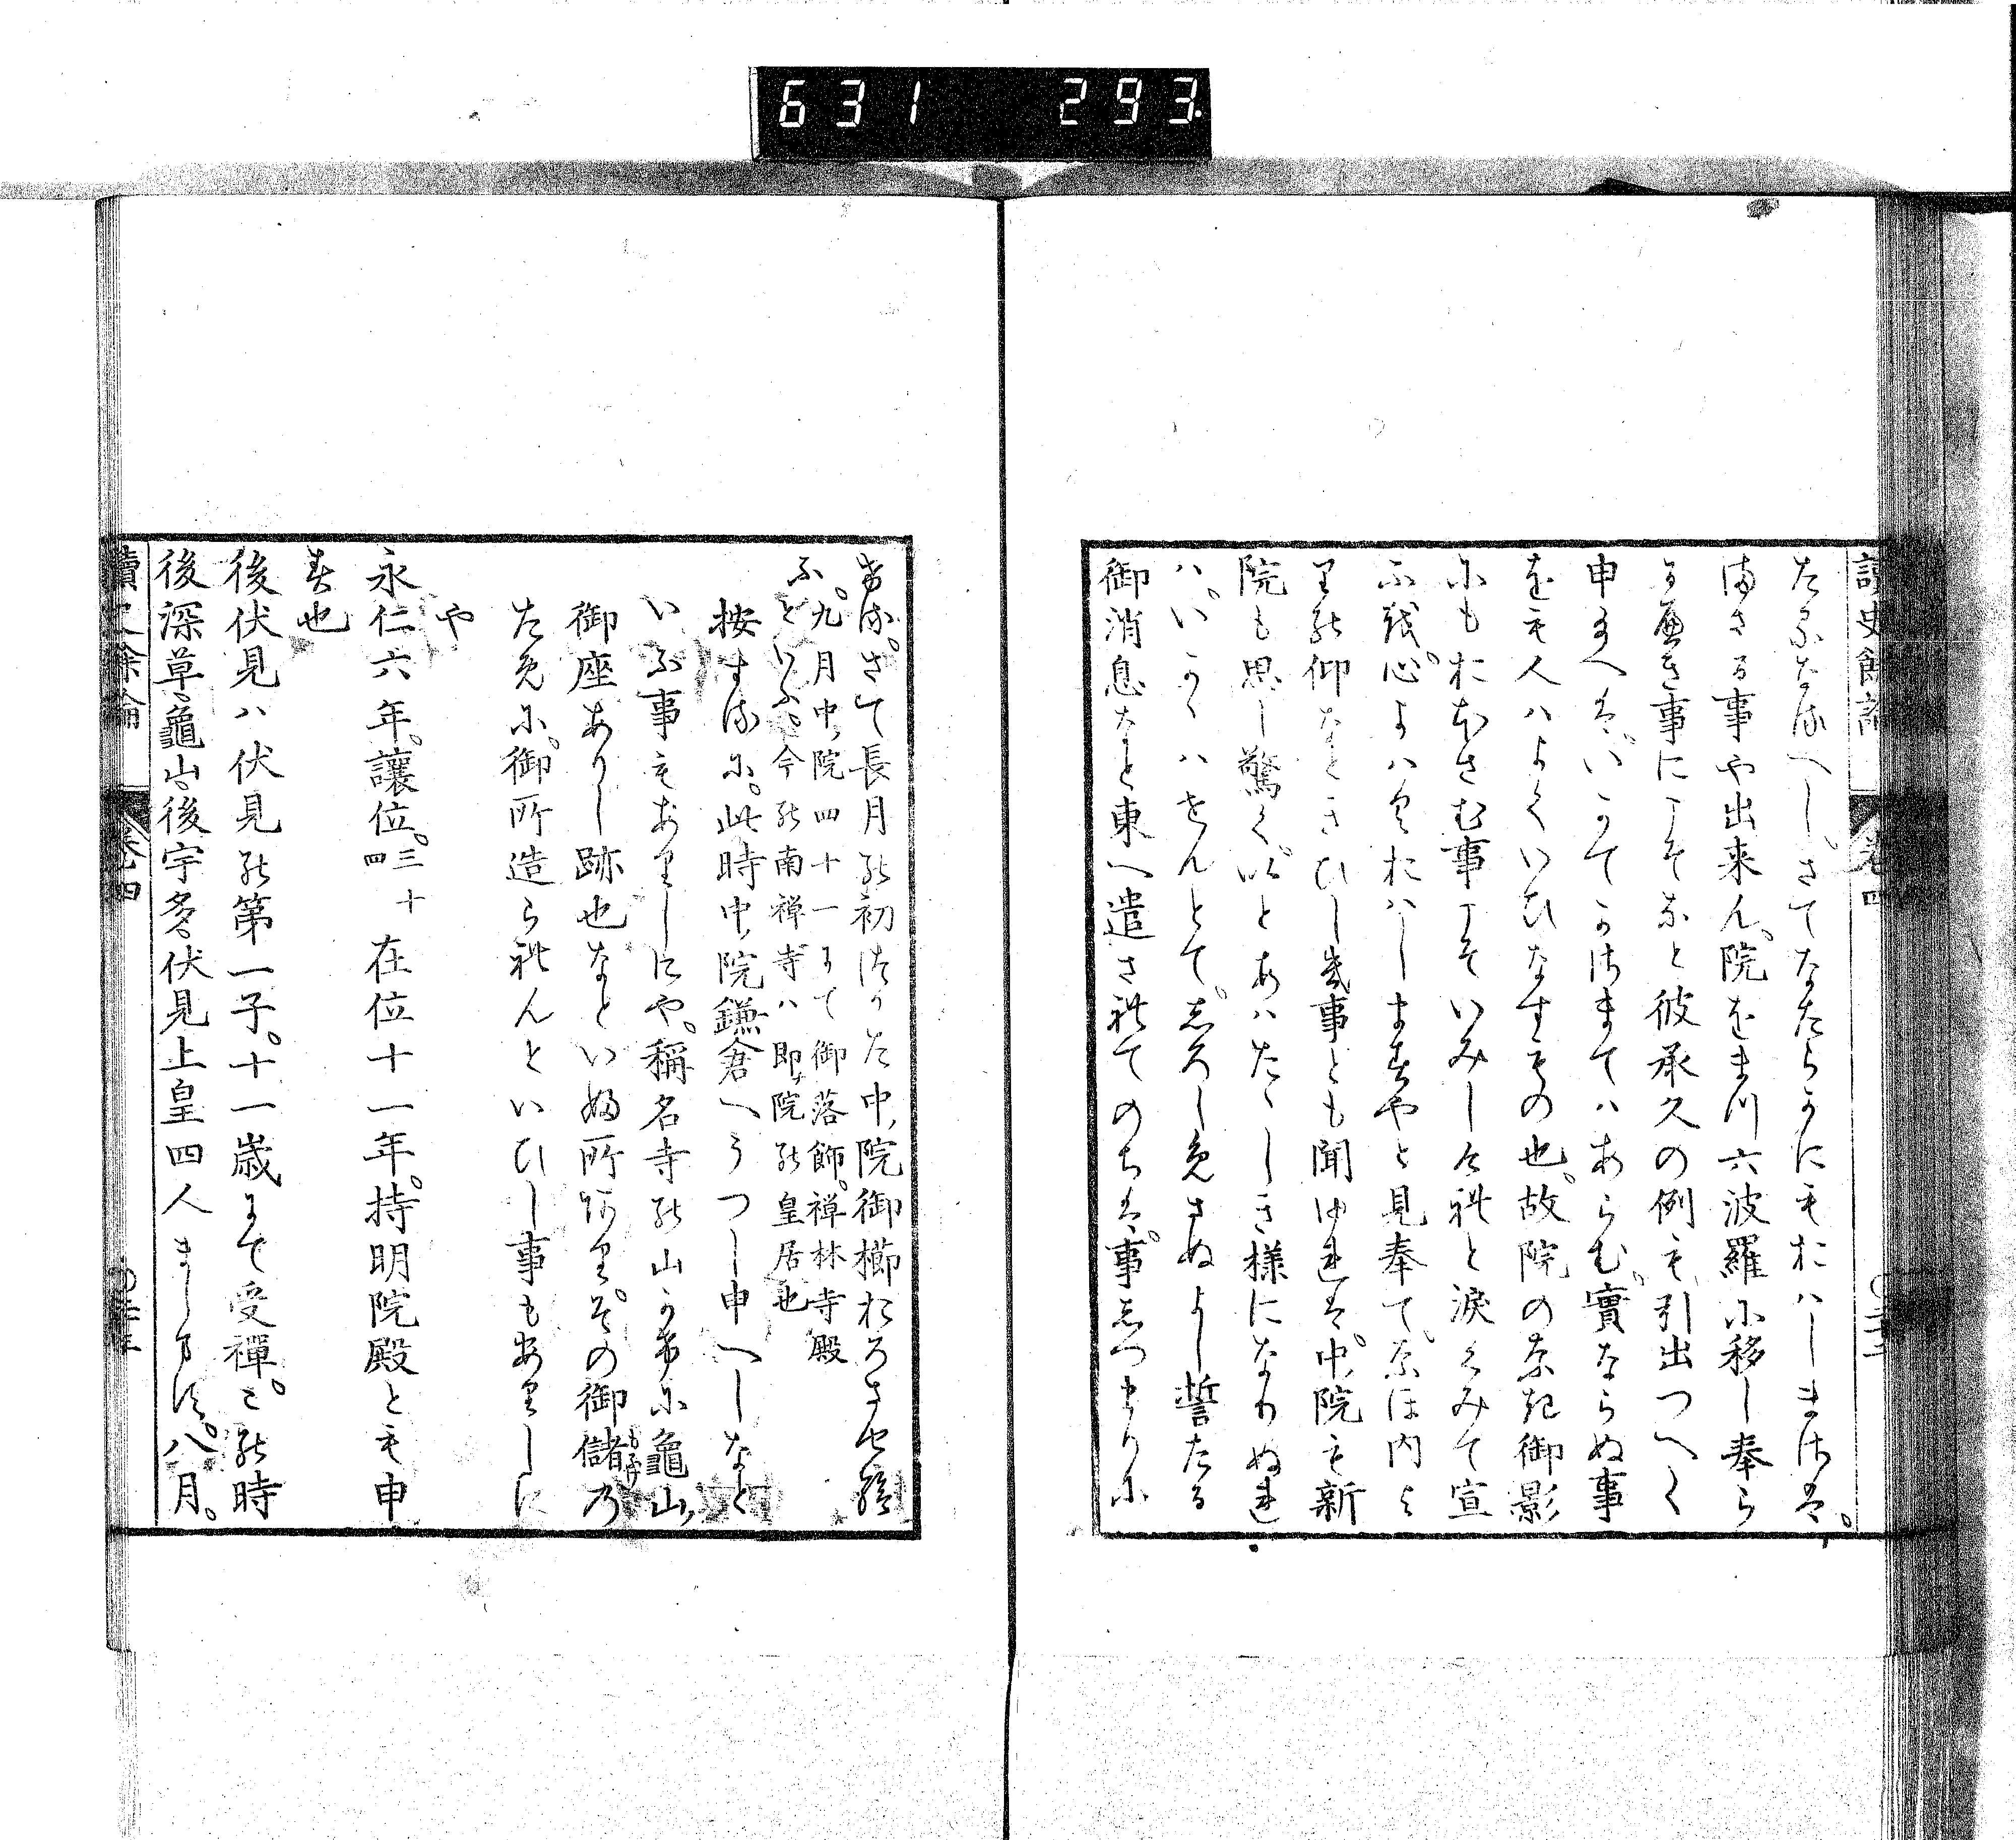 631 293
讀史餘論 卷四
たるなるへし。さてなたらかにもおはしまさは。
まさる事や出来ん。院をまつ六波羅に移し奉ら
るへき事にこそなと彼承久の例も引出つへく
申給へは。いかてかさまてはあらむ。實ならぬ事
をも人はよくいひなすもの也。故院のなき御影
にもおほさむ事こそいみしけれと涙くみて宣
ふを。心よはくおはしますやと見奉て。なほ内よ
りの仰なときひしき事とも聞ゆれは。中院も新
院も思し驚く。いとあはたゝしき様になりぬれ
は。いかゝはせんとて。しろしめさぬよし誓たる
御消息なと東へ遣されてのちは。事しつまりに
ける。さて長月の初つかた中院御櫛おろさせ給
ふ。九月中院四十一にて御落飾。禅林寺殿
といふ。今の南禅寺は即院の皇居也
按するに。此時中院鎌倉へうつし申へしなと
いふ事もありしにや。稱名寺の山かけに龜山
御座ありし跡也なといふ所ありそ。その御儲の
ために。御所造られんといひし事もありしに
や
永仁六年。讓位。三十四 在位十一年。持明院殿とも申
す也
後伏見ハ伏見の第一子。十一歳にて受禪。この時
後深草龜山後宇多伏見上皇四人まします。八月。
讀史餘論 卷四